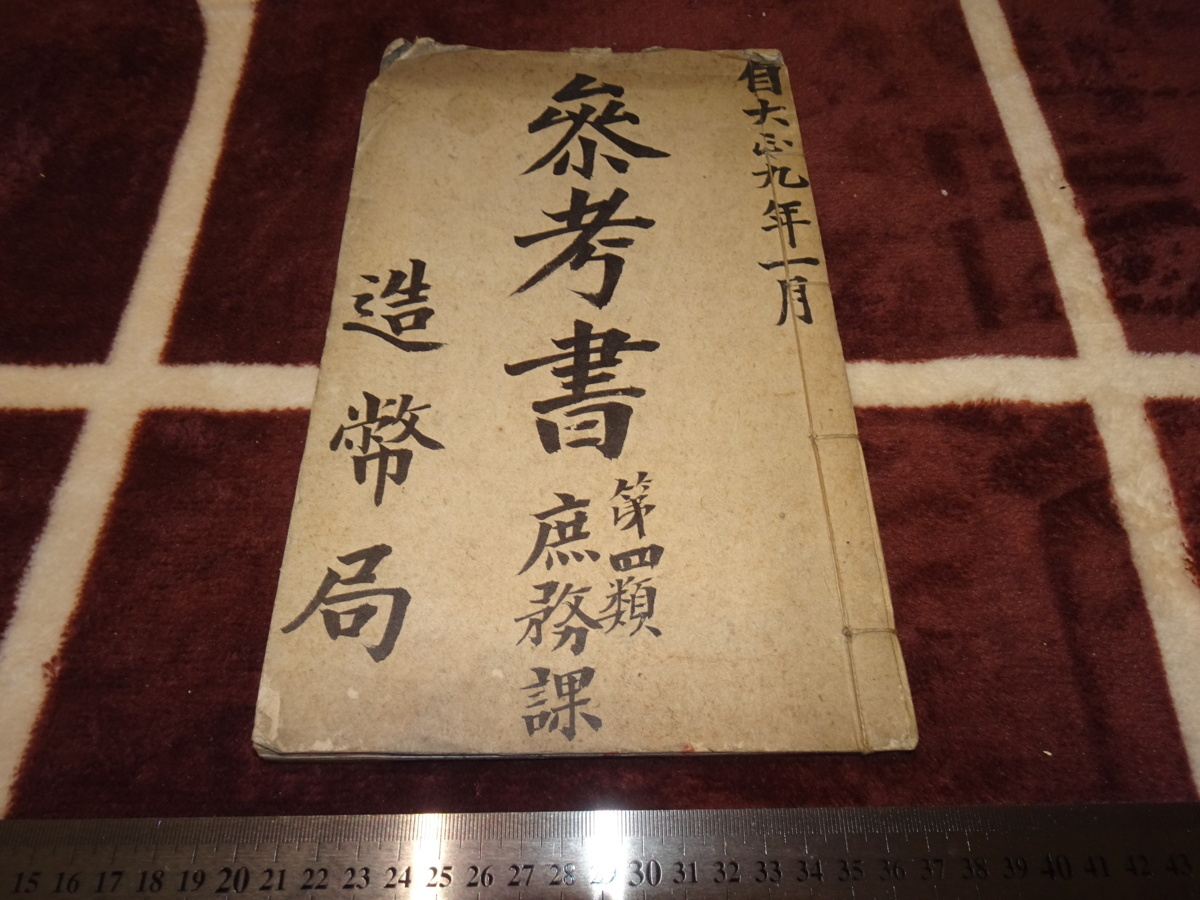 自大正九年一月
參考書
第四類
庶務課
造幣局
15 16 17 18 19 20 21 22 23 24 25 26 27 28 29 30 31 32 33 34 35 36 37 38 39 40 41 42 43